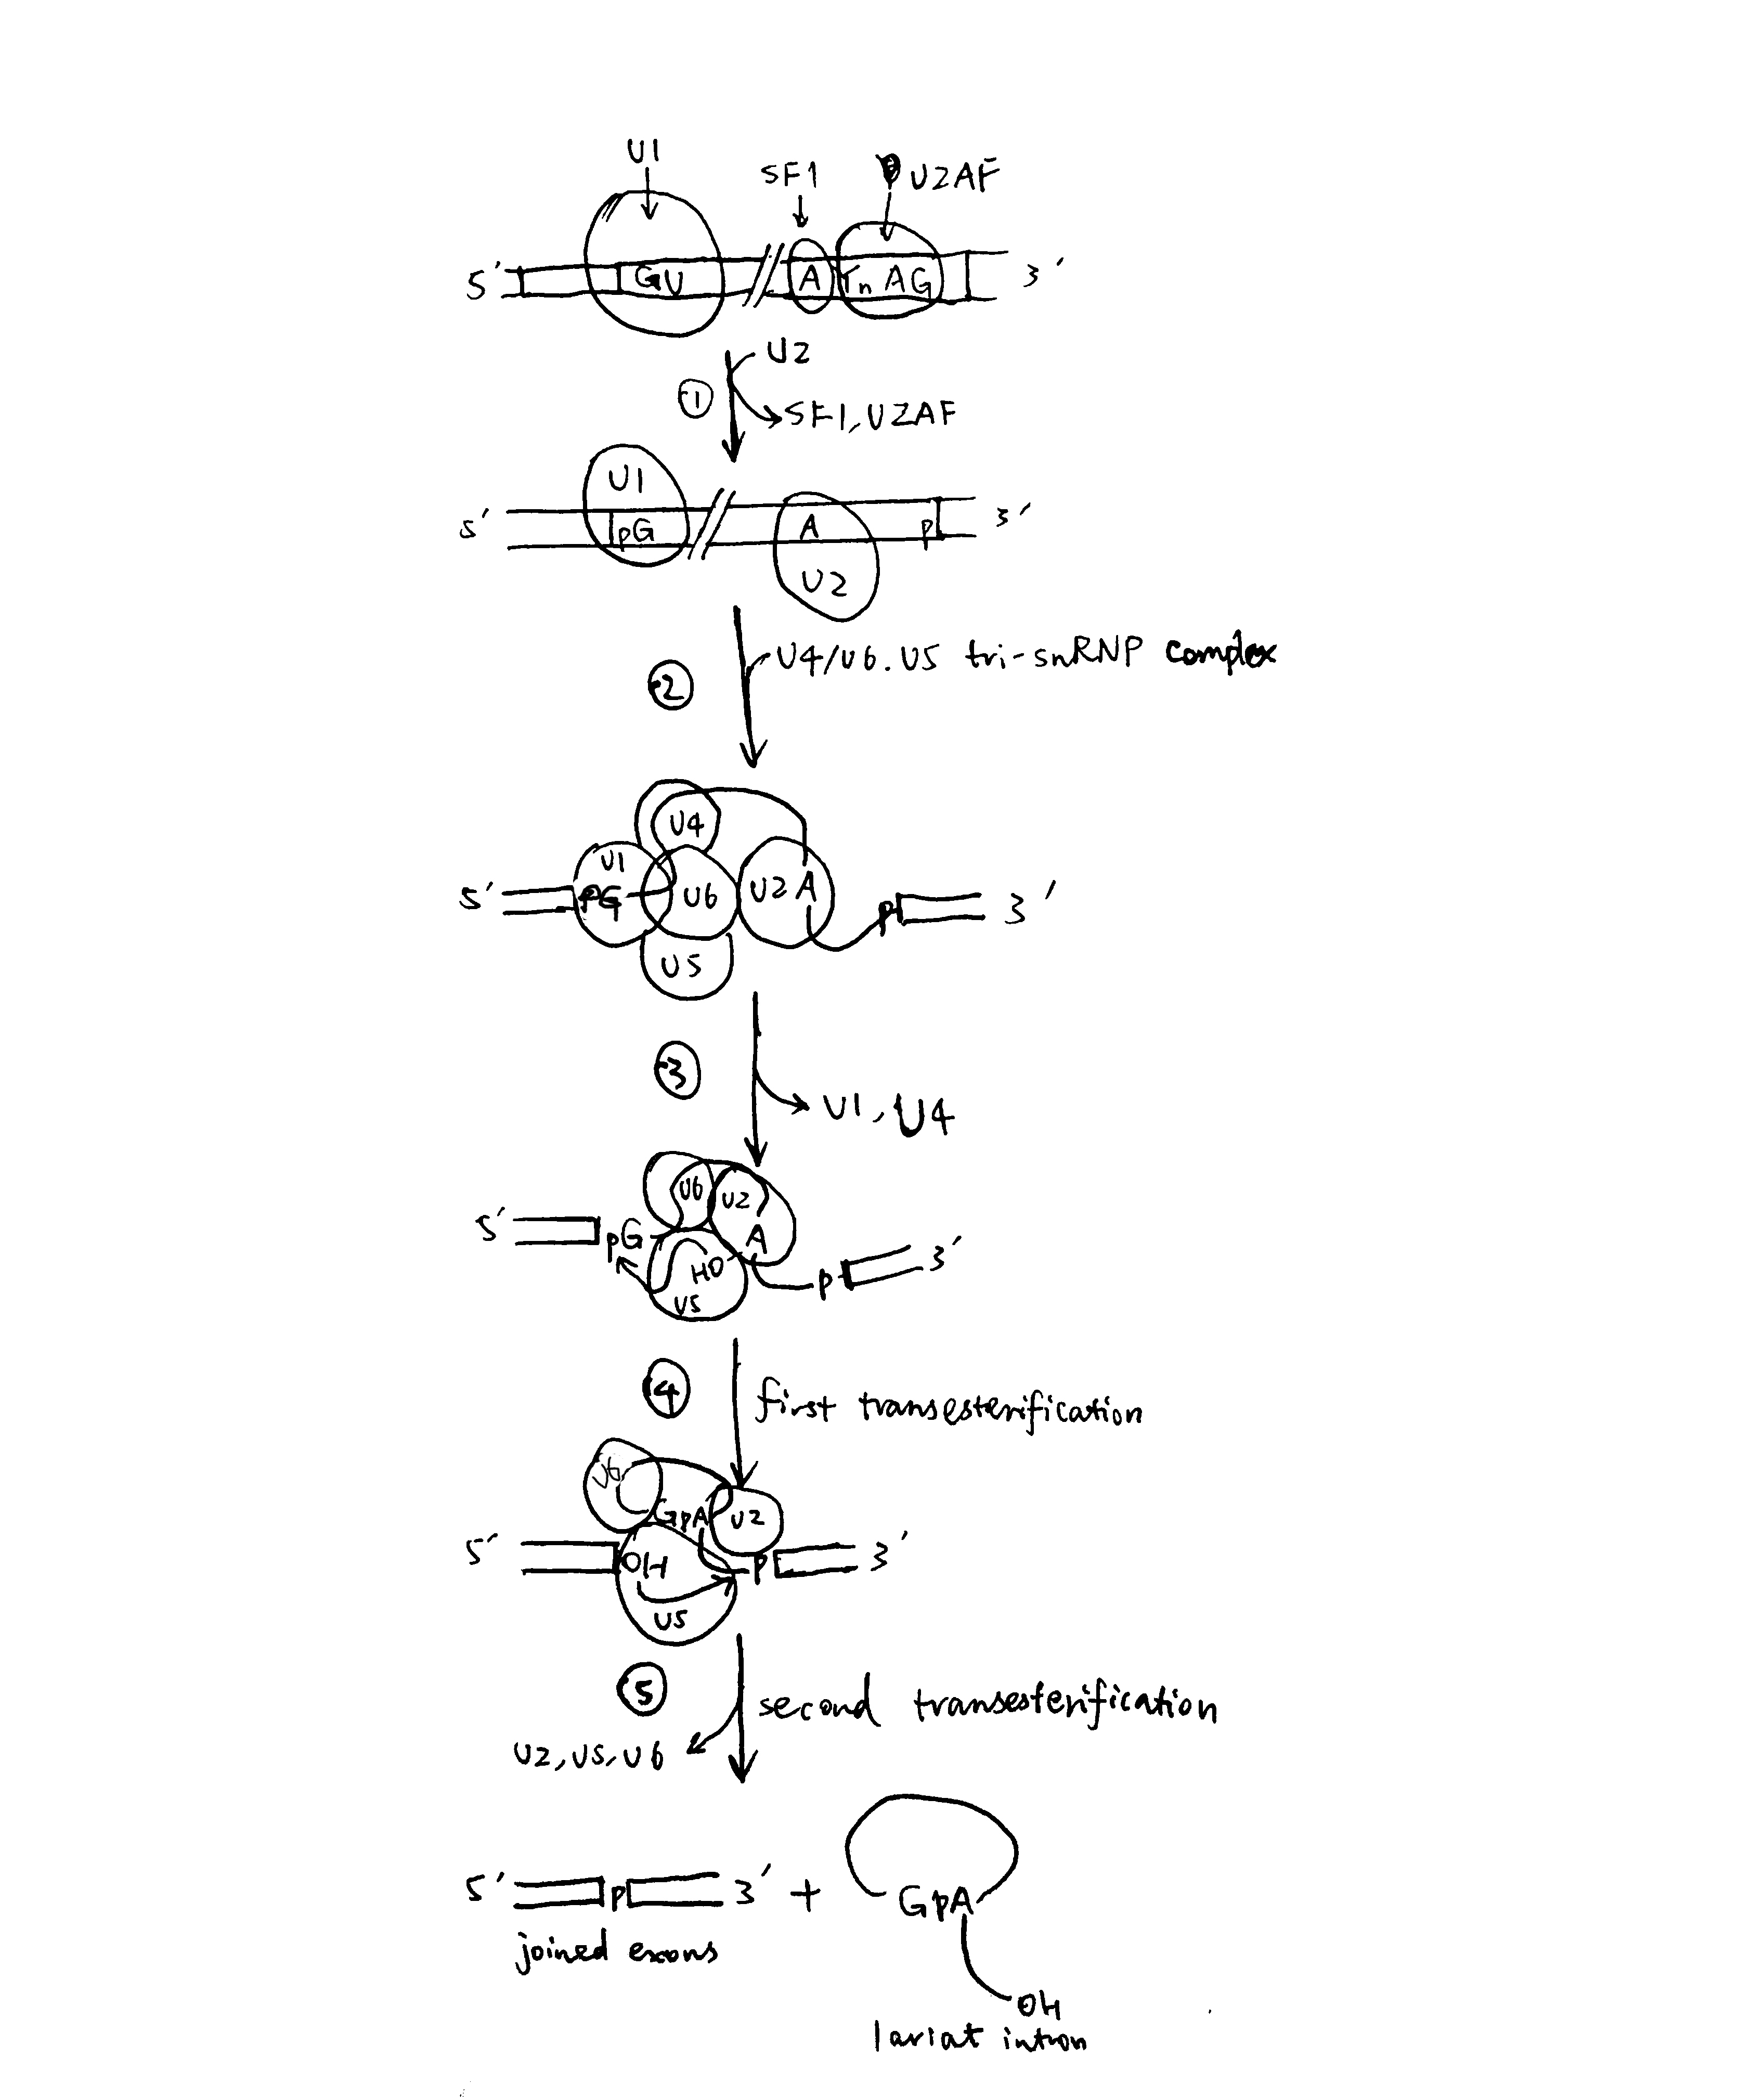 U1
SF1
U2AF
5′ GU // A Yn AG 3′
U2
①
SF1, U2AF
U1
5′ pG // A p 3′
U2
U4/U6.U5 tri-snRNP complex
②
U4
U1
5′ pG U6 U2 A p 3′
U5
③
U1, U4
U6 U2
5′ pG A 3′
HO p
U5
④ first transesterification
U6
GpA U2
5′ OH p 3′
U5
⑤ second transesterification
U2, U5, U6
5′ p 3′ + GpA
joined exons
OH
lariat intron